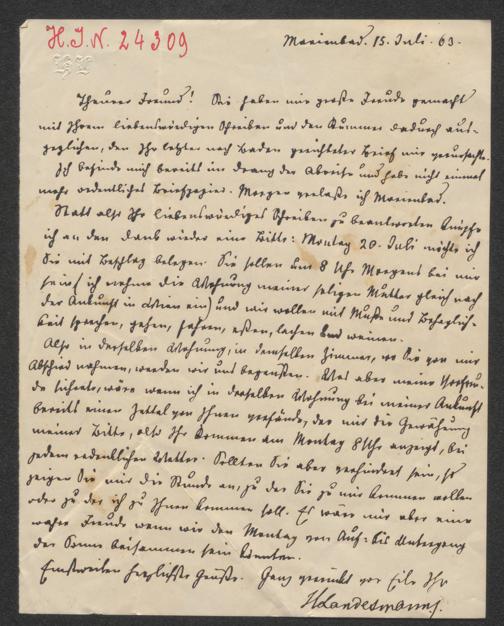 H.I.N. 24309
Marienbad. 15. Juli. 63.
Theurer Freund! Sie haben mir große Freude gemacht
mit Ihrem liebenswürdigen Schreiben und den Kummer dadurch aus-
geglichen, den Ihr letzter nach Baden gerichteter Brief mir verursachte.
Ich befinde mich bereits im Drang der Abreise und habe nicht einmal
mehr ordentliches Briefpapier. Morgen verlasse ich Marienbad.
Statt also Ihr liebenswürdiges Schreiben zu beantworten knüpfe
ich an den Dank wieder eine Bitte: Montag 20. Juli möchte ich
Sie mit Beschlag belegen. Sie sollen um 8 Uhr Morgens bei mir
sein/ ich nehme die Wohnung meiner seligen Mutter gleich nach
der Ankunft in Wien ein/ und wir wollen mit Muße und Behaglich-
keit sprechen, gehen, fahren, essen, lachen und weinen.
Also in derselben Wohnung, in demselben Zimmer, wo Sie von mir
Abschied nahmen, werden wir uns begrüßen. Was aber meine
bereits einen Zettel von Ihnen vorfände, der mir die Gewährung
meiner Bitte, also Ihr Kommen am Montag 8 Uhr anzeigt, bei
jedem ordentlichen Wetter. Sollten Sie aber verhindert sein, so
zeigen Sie mir die Stunde an, zu der Sie zu mir kommen wollen
oder zu der ich zu Ihnen kommen soll. Es wäre mir aber eine
wahre Freude wenn wir den Montag von Auf- bis Untergang
der Sonne beisammen sein könnten.
Einstweilen herzlichste Grüße. Ganz verwirrt vor Eile Ihr
HLandesmann.